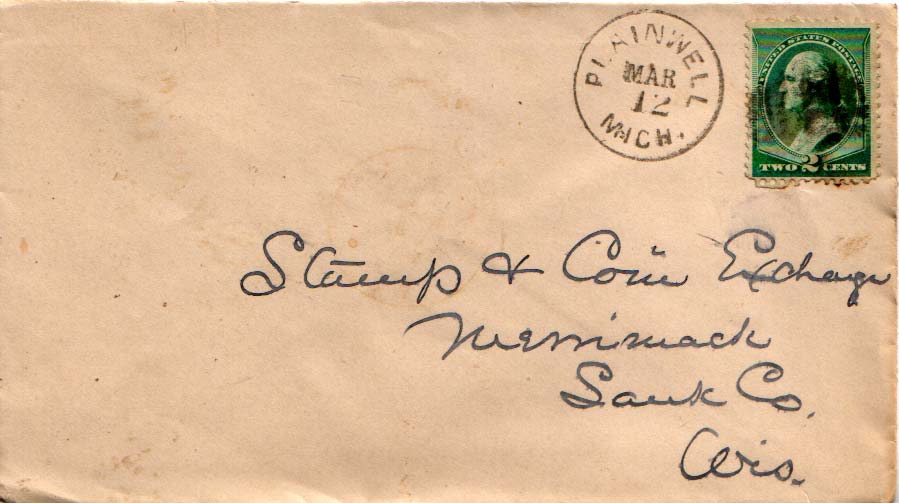 PLAINWELL
MAR
12
MICH.
UNITED STATES POSTAGE
TWO 2 CENTS
Stamp & Coin Exchange
Merrimack
Sauk Co.
Wis.